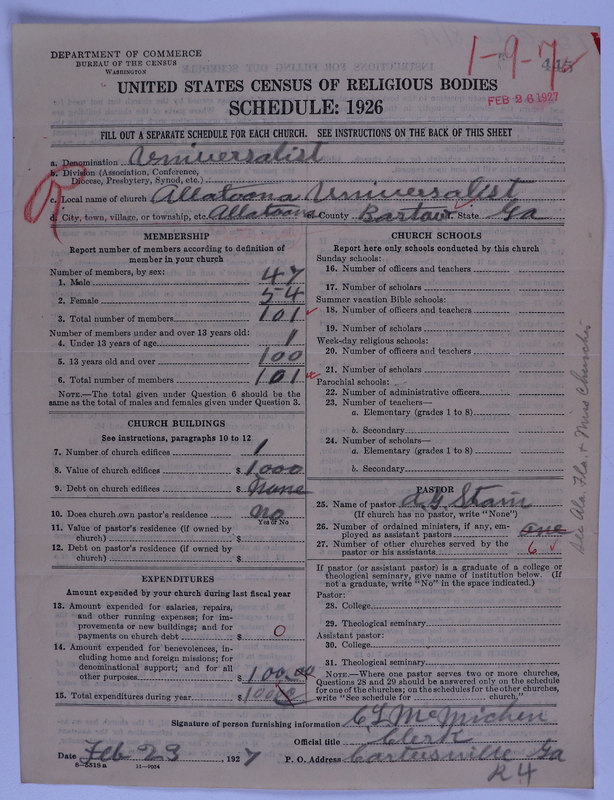 DEPARTMENT OF COMMERCE
BUREAU OF THE CENSUS
WASHINGTON
1-9-7
445
FEB 26 1927
UNITED STATES CENSUS OF RELIGIOUS BODIES
SCHEDULE: 1926
FILL OUT A SEPARATE SCHEDULE FOR EACH CHURCH. SEE INSTRUCTIONS ON THE BACK OF THIS SHEET
a. Denomination Universalist
b. Division (Association, Conference,
Diocese, Presbytery, Synod, etc.)
c. Local name of church Allatoona Universalist
d. City, town, village, or township, etc. Allatoona County Bartow State Ga
MEMBERSHIP
Report number of members according to definition of
member in your church
Number of members, by sex:
1. Male 47
2. Female 54
3. Total number of members 101
Number of members under and over 13 years old:
4. Under 13 years of age 1
5. 13 years old and over 100
6. Total number of members 101
NOTE.—The total given under Question 6 should be
same as the total of males and females given under Question 3.
CHURCH BUILDINGS
See instructions, paragraphs 10 to 12
7. Number of church edifices 1
8. Value of church edifices $ 1000
9. Debt on church edifices $ None
10. Does church own pastor's residence? no
Yes or No
11. Value of pastor's residence (if owned by
church) $
12. Debt on pastor's residence (if owned by
church) $
EXPENDITURES
Amount expended by your church during last fiscal year
13. Amount expended for salaries, repairs,
and other running expenses; for im-
provements or new buildings; and for
payments on church debt $ 0
14. Amount expended for benevolences, in-
cluding home and foreign missions; for
denominational support; and for all
other purposes $ 100.00
15. Total expenditures during year $ 100
CHURCH SCHOOLS
Report here only schools conducted by this church
Sunday schools:
16. Number of officers and teachers
17. Number of scholars
Summer vacation Bible schools:
18. Number of officers and teachers
19. Number of scholars
Week-day religious schools:
20. Number of officers and teachers
21. Number of scholars
Parochial schools:
22. Number of administrative officers
23. Number of teachers—
a. Elementary (grades 1 to 8)
b. Secondary
24. Number of scholars—
a. Elementary (grades 1 to 8)
b. Secondary
PASTOR
25. Name of pastor
(If church has no pastor, write "None")
26. Number of ordained ministers, if any, em-
ployed as assistant pastors one
27. Number of other churches served by the
pastor or his assistants 6
If pastor (or assistant pastor) is a graduate of a college or
theological seminary, give name of institution below. (If
not a graduate, write "No" in the space indicated.)
Pastor:
28. College
29. Theological seminary
Assistant pastor:
30. College
31. Theological seminary
NOTE.—Where one pastor serves two or more churches,
Questions 28 and 29 should be answered only on the schedule
for one of the churches; on the schedules for the other churches,
write "See schedule for church."
See Ala. Fla. & Miss Churches
Signature of person furnishing information C L McMichen
Official title Clerk
Date Feb 23, 1927 P. O. Address Cartersville Ga
R 4
8-5518a 11-8664